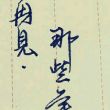 那些年
再見，